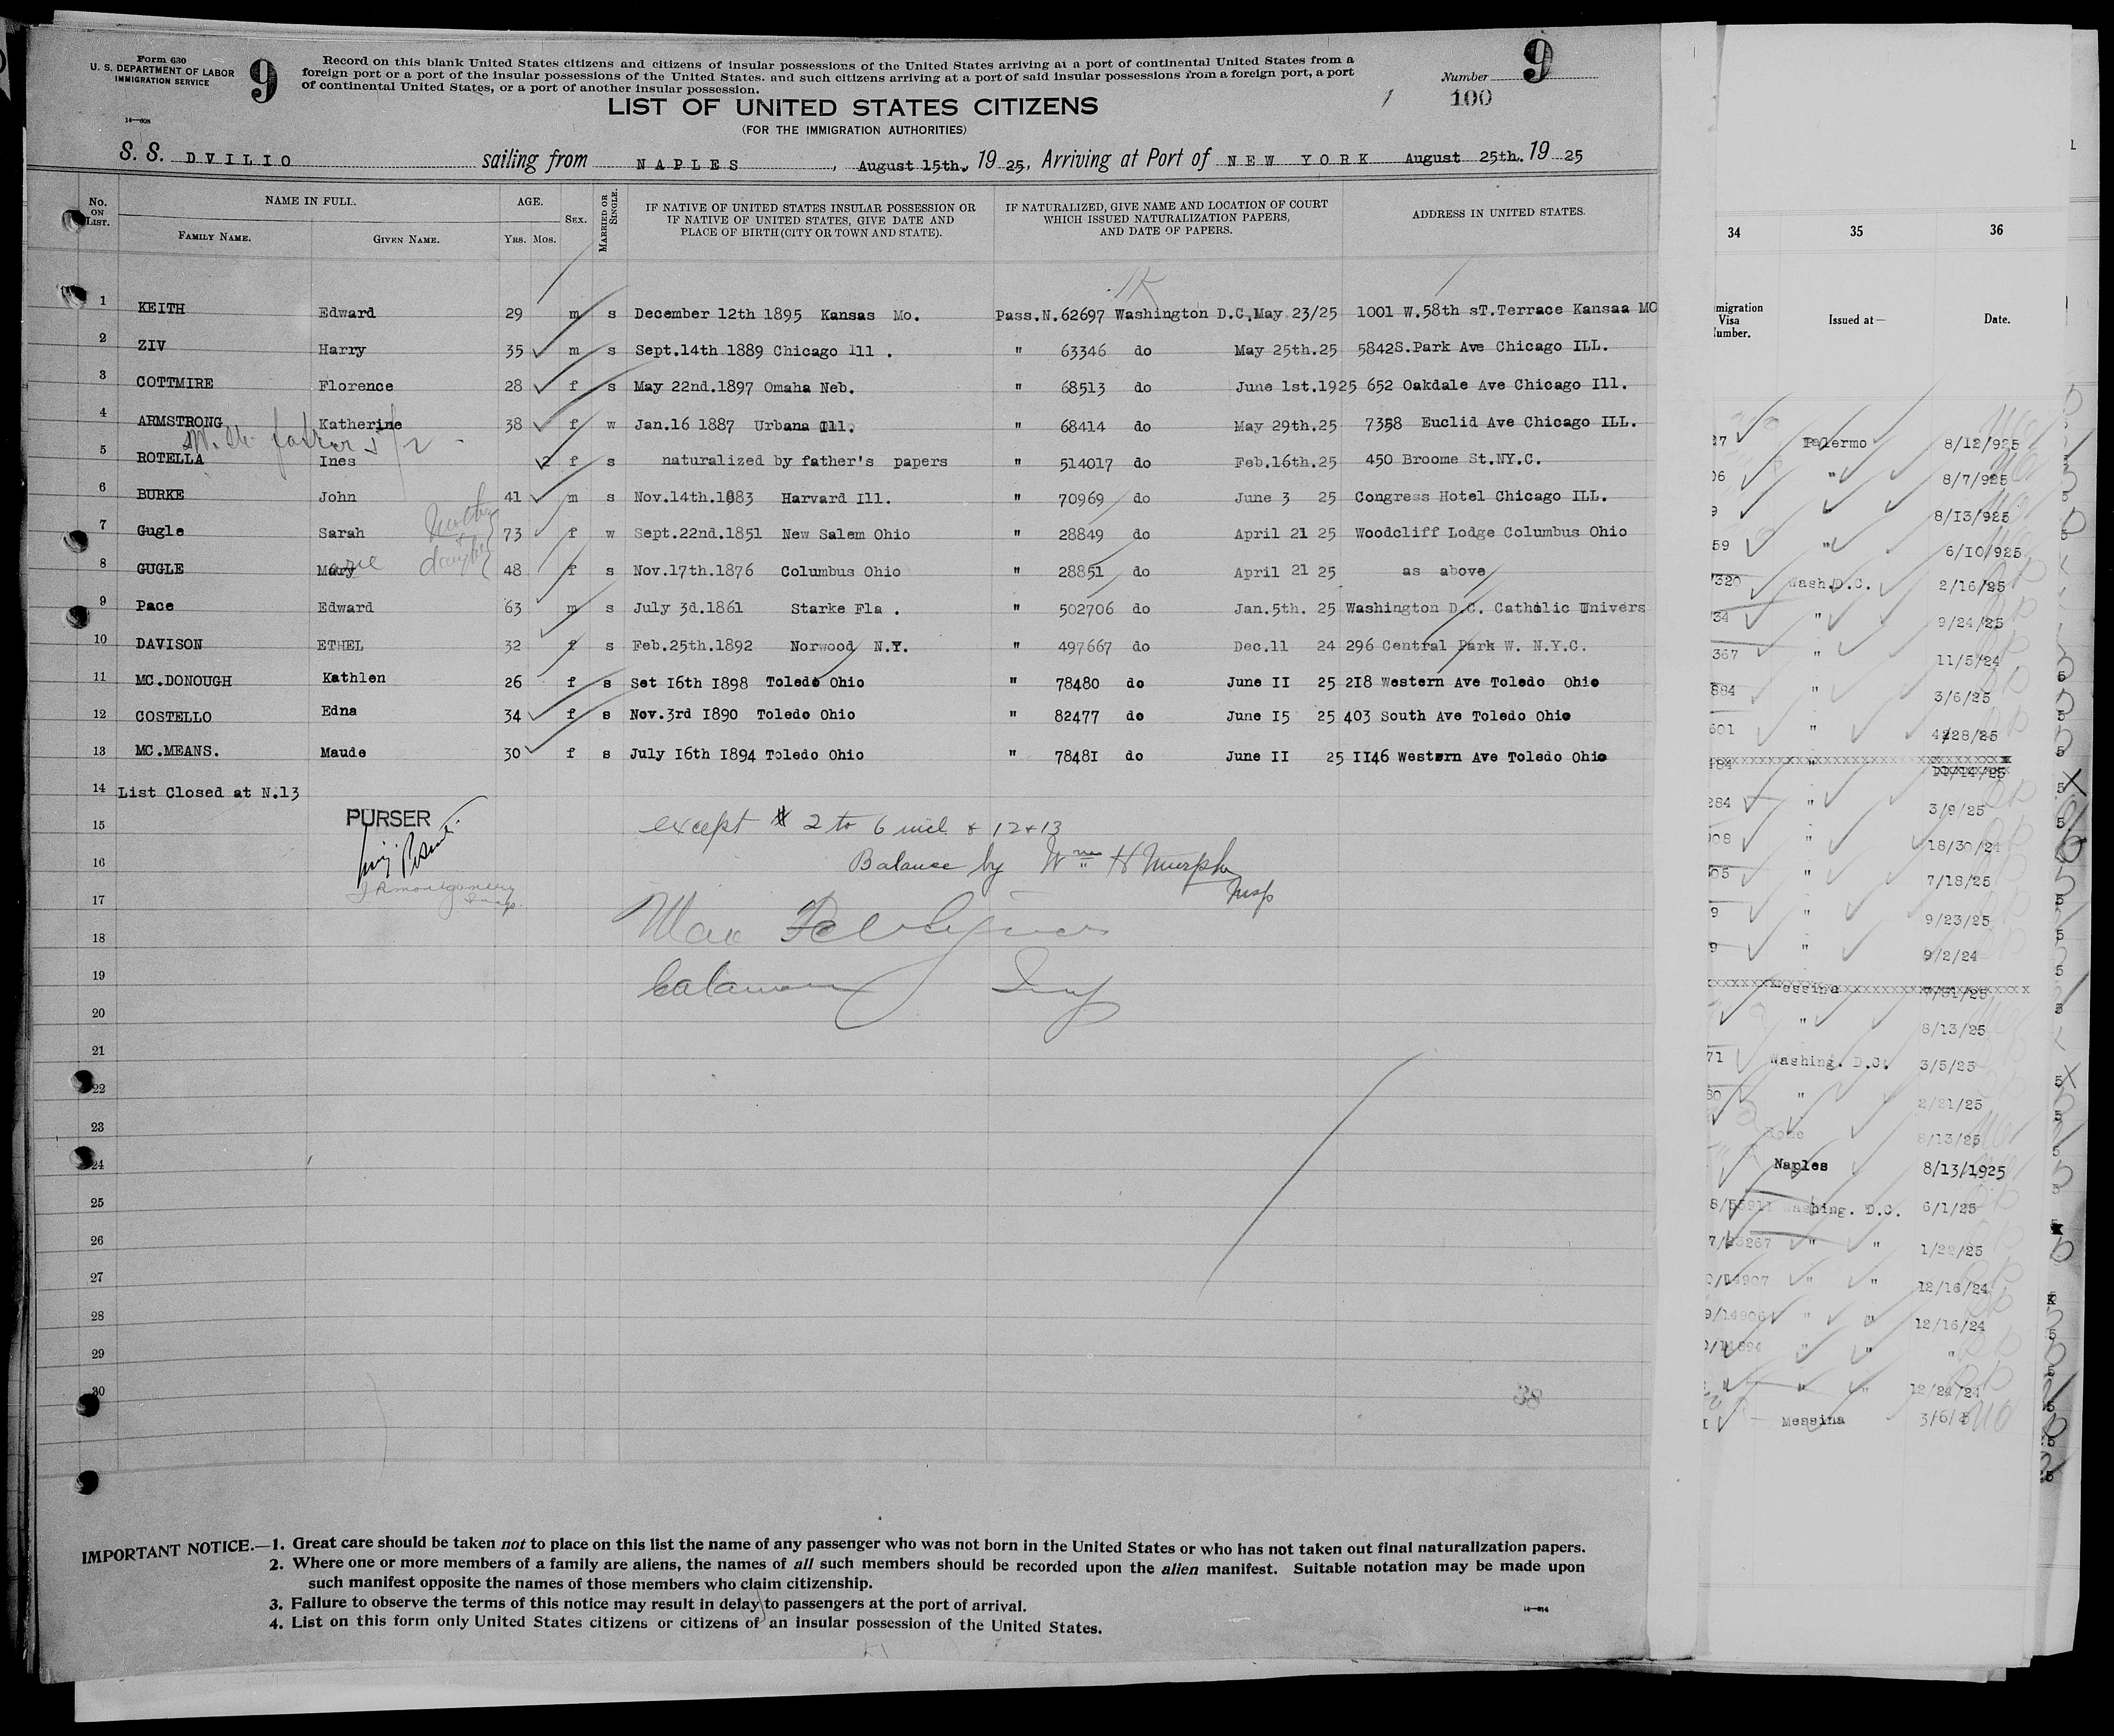 Form 630
U. S. DEPARTMENT OF LABOR
IMMIGRATION SERVICE
9
Record on this blank United States citizens and citizens of insular possessions of the United States arriving at a port of continental United States from a
foreign port or a port of the insular possessions of the United States. and such citizens arriving at a port of said insular possessions from a foreign port, a port
of continental United States, or a port of another insular possession.
Number 9
100
LIST OF UNITED STATES CITIZENS
(FOR THE IMMIGRATION AUTHORITIES)
S. S. DVILIO sailing from NAPLES, August 15th., 19 25, Arriving at Port of NEW YORK August 25th. 19 25
No. ON LIST.
NAME IN FULL.
FAMILY NAME. GIVEN NAME.
AGE.
YRS. MOS.
SEX.
MARRIED OR SINGLE.
IF NATIVE OF UNITED STATES INSULAR POSSESSION OR
IF NATIVE OF UNITED STATES, GIVE DATE AND
PLACE OF BIRTH (CITY OR TOWN AND STATE).
IF NATURALIZED, GIVE NAME AND LOCATION OF COURT
WHICH ISSUED NATURALIZATION PAPERS,
AND DATE OF PAPERS.
ADDRESS IN UNITED STATES.
1 KEITH Edward 29 m s December 12th 1895 Kansas Mo. Pass.N.62697 Washington D.C.May 23/25 1001 W.58th sT.Terrace Kansaa MO
2 ZIV Harry 35 m s Sept.14th 1889 Chicago Ill . " 63346 do May 25th.25 5842S.Park Ave Chicago ILL.
3 COTTMIRE Florence 28 f s May 22nd.1897 Omaha Neb. " 68513 do June 1st.1925 652 Oakdale Ave Chicago Ill.
4 ARMSTRONG Katherine 38 f w Jan.16 1887 Urbana Ill. " 68414 do May 29th.25 7358 Euclid Ave Chicago ILL.
5 ROTELLA Ines 2 f s naturalized by father's papers " 514017 do Feb.16th.25 450 Broome St.NY.C.
6 BURKE John 41 m s Nov.14th.1883 Harvard Ill. " 70969 do June 3 25 Congress Hotel Chicago ILL.
7 Gugle Sarah 73 f w Sept.22nd.1851 New Salem Ohio " 28849 do April 21 25 Woodcliff Lodge Columbus Ohio
8 GUGLE Mary 48 f s Nov.17th.1876 Columbus Ohio " 28851 do April 21 25 as above
9 Pace Edward 63 m s July 3d.1861 Starke Fla . " 502706 do Jan.5th. 25 Washington D.C. Catholic Univers
10 DAVISON ETHEL 32 f s Feb.25th.1892 Norwood N.Y. " 497667 do Dec.11 24 296 Central Park W. N.Y.C.
11 MC.DONOUGH Kathlen 26 f s Set 16th 1898 Toledo Ohio " 78480 do June II 25 218 Western Ave Toledo Ohio
12 COSTELLO Edna 34 f s Nov.3rd 1890 Toledo Ohio " 82477 do June 15 25 403 South Ave Toledo Ohio
13 MC.MEANS. Maude 30 f s July 16th 1894 Toledo Ohio " 78481 do June II 25 1146 Western Ave Toledo Ohio
14 List Closed at N.13
PURSER
15 except # 2 to 6 incl & 12+13
16 Balance by Wm H Murphy
Insp
17
18
19
20
21
22
23
24
25
26
27
28
29
30
38
IMPORTANT NOTICE.—1. Great care should be taken not to place on this list the name of any passenger who was not born in the United States or who has not taken out final naturalization papers.
2. Where one or more members of a family are aliens, the names of all such members should be recorded upon the alien manifest. Suitable notation may be made upon
such manifest opposite the names of those members who claim citizenship.
3. Failure to observe the terms of this notice may result in delay to passengers at the port of arrival.
4. List on this form only United States citizens or citizens of an insular possession of the United States.
34 35 36
migration Visa umber. Issued at— Date.
Palermo 8/12/925
" 8/7/925
8/13/925
59 " 6/10/925
320 Wash.D.C. 2/16/25
34 " 9/24/25
367 " 11/5/24
884 " 3/6/25
601 " 4/28/25
284 " 3/9/25
08 " 18/30/24
" 7/18/25
9 " 9/23/25
9 " 9/2/24
" 8/13/25
71 Washing. D.C. 3/5/25
" 2/21/25
Rome 8/13/25
Naples 8/13/1925
Washing. D.C. 6/1/25
" " 1/22/25
" " 12/16/24
" " 12/16/24
" " "
" " 12/24/24
Messina